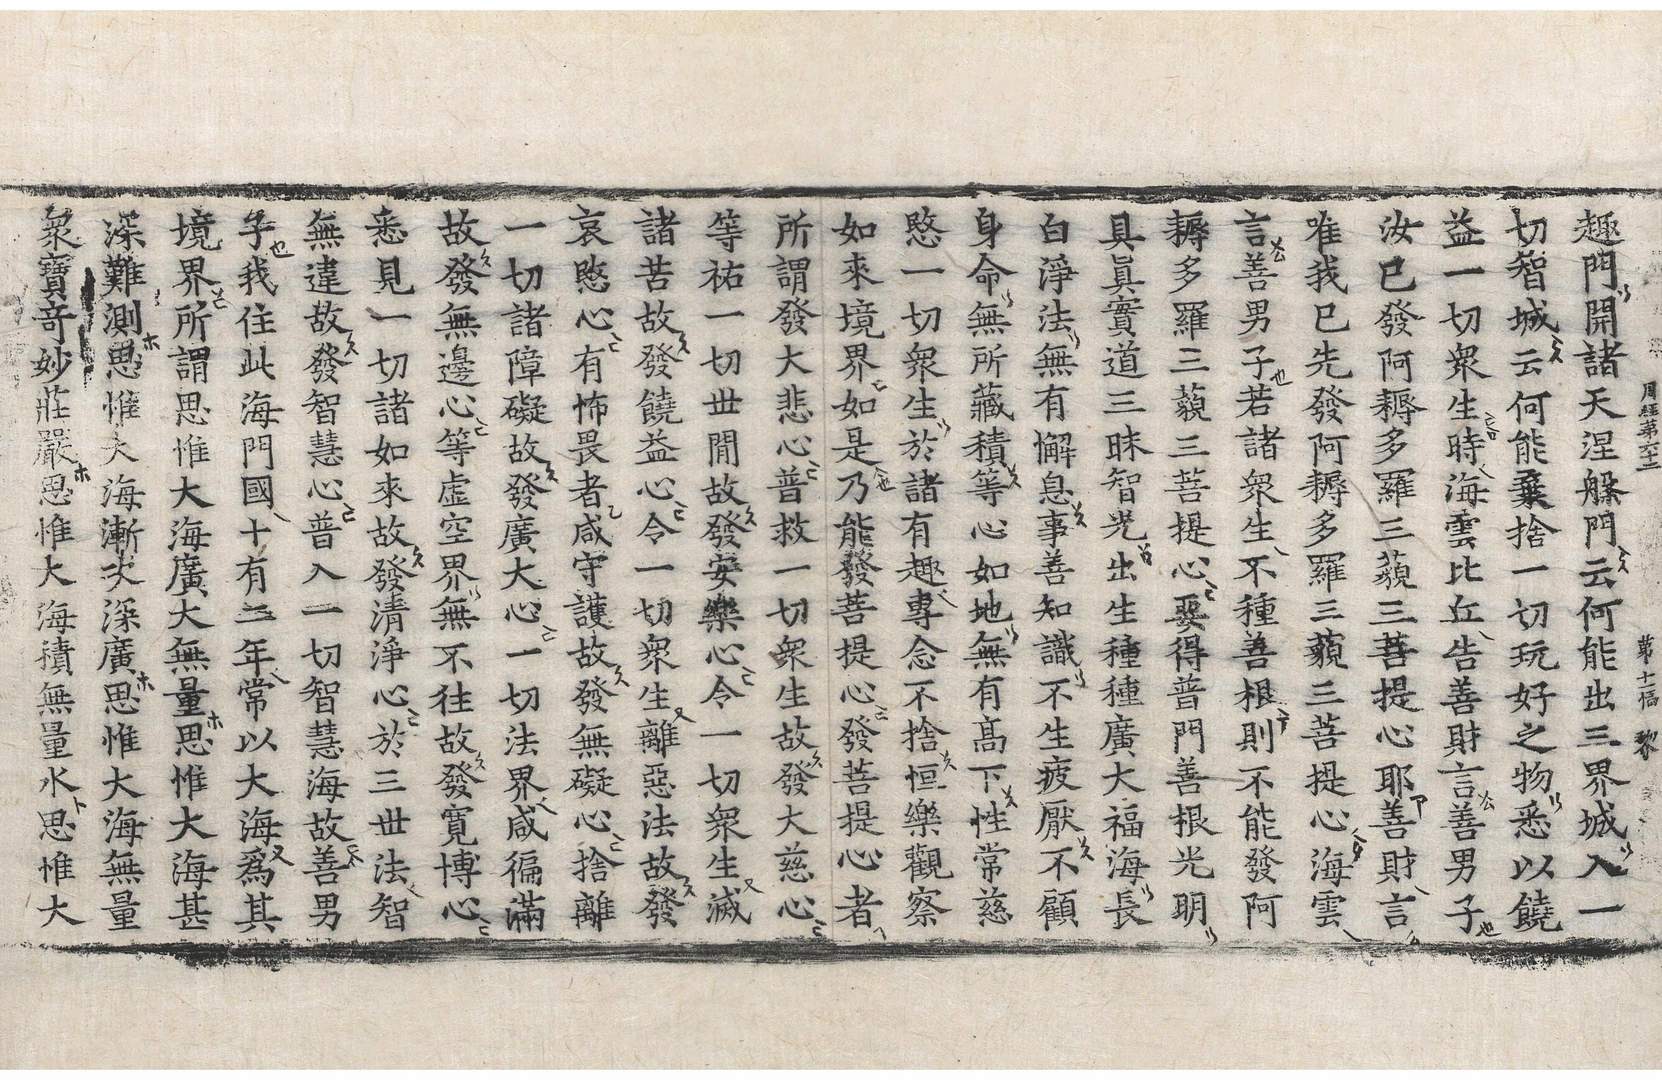 周經第六十二　第十一幅　黎
趣門開諸天涅槃門云何能出三界城入一
切智城云何能棄捨一切玩好之物悉以饒
益一切衆生時海雲比丘告善財言善男子
汝已發阿耨多羅三藐三菩提心耶善財言
唯我已先發阿耨多羅三藐三菩提心海雲
言善男子若諸衆生不種善根則不能發阿
耨多羅三藐三菩提心要得普門善根光明
具真實道三昧智光出生種種廣大福海長
白淨法無有懈息事善知識不生疲厭不顧
身命無所藏積等心如地無有高下性常慈
愍一切衆生於諸有趣專念不捨恒樂觀察
如來境界如是乃能發菩提心發菩提心者
所謂發大悲心普救一切衆生故發大慈心
等祐一切世間故發安樂心令一切衆生滅
諸苦故發饒益心令一切衆生離惡法故發
哀愍心有怖畏者咸守護故發無礙心捨離
一切諸障礙故發廣大心一切法界咸徧滿
故發無邊心等虛空界無不往故發寬博心
悉見一切諸如來故發清淨心於三世法智
無違故發智慧心普入一切智慧海故善男
子我住此海門國十有二年常以大海爲其
境界所謂思惟大海廣大無量思惟大海甚
深難測思惟大海漸次深廣思惟大海無量
衆寶奇妙莊嚴思惟大海積無量水思惟大